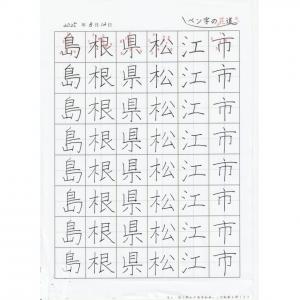 2025年8月12日
ペン字の花道
島根県松江市
島根県松江市
島根県松江市
島根県松江市
島根県松江市
島根県松江市
島根県松江市
島根県松江市